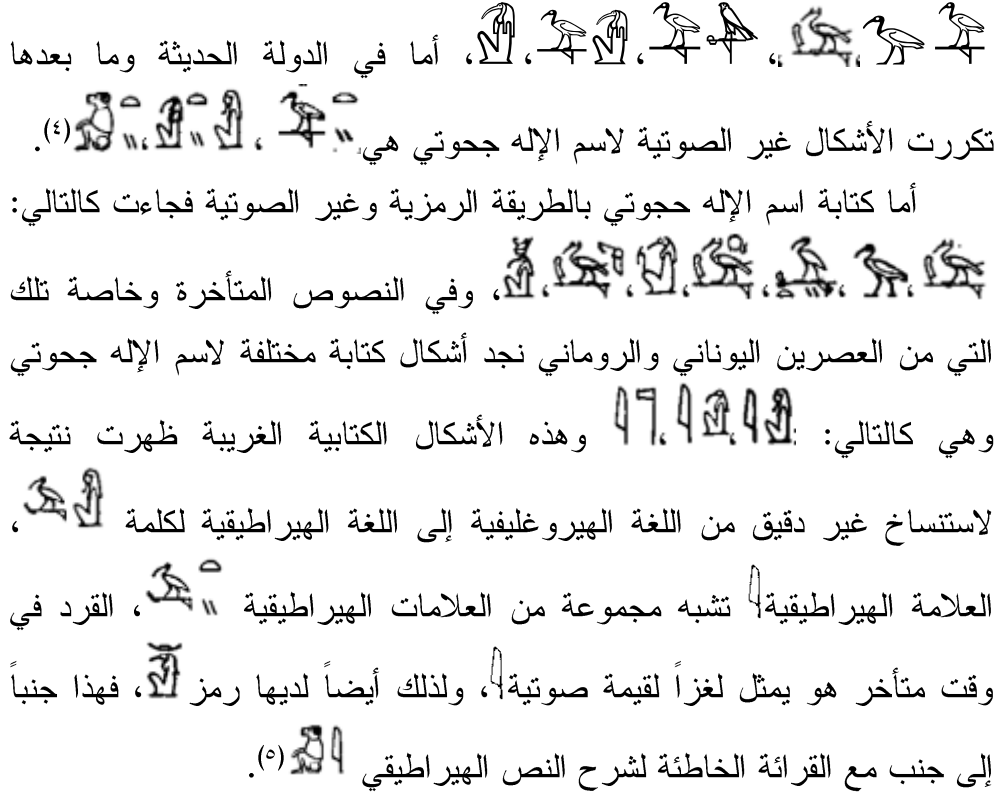 ، ، ، ، ، ، أما في الدولة الحديثة وما بعدها
تكررت الأشكال غير الصوتية لاسم الإله جحوتي هي ، ، ، (٤).
أما كتابة اسم الإله حجوتي بالطريقة الرمزية وغير الصوتية فجاءت كالتالي:
، ، ، ، ، ، ، وفي النصوص المتأخرة وخاصة تلك
التي من العصرين اليوناني والروماني نجد أشكال كتابة مختلفة لاسم الإله جحوتي
وهي كالتالي: ، ، وهذه الأشكال الكتابية الغريبة ظهرت نتيجة
لاستنساخ غير دقيق من اللغة الهيروغليفية إلى اللغة الهيراطيقية لكلمة ،
العلامة الهيراطيقية تشبه مجموعة من العلامات الهيراطيقية ، القرد في
وقت متأخر هو يمثل لغزاً لقيمة صوتية ، ولذلك أيضاً لديها رمز ، فهذا جنباً
إلى جنب مع القرائة الخاطئة لشرح النص الهيراطيقي (٥).